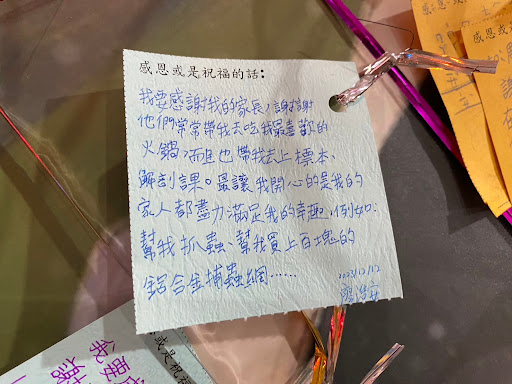 感恩或是祝福的話:
我要感謝我的家長，謝謝
他們常常帶我去吃我最喜歡的
火鍋，而且也帶我去上標本、
解剖課。最讓我開心的是我的
家人都盡力滿足我的幸趣，例如:
幫我抓蟲、幫我買上百塊的
鋁合金捕蟲網……
2023/12/12
感恩或
我要
謝
或是祝福